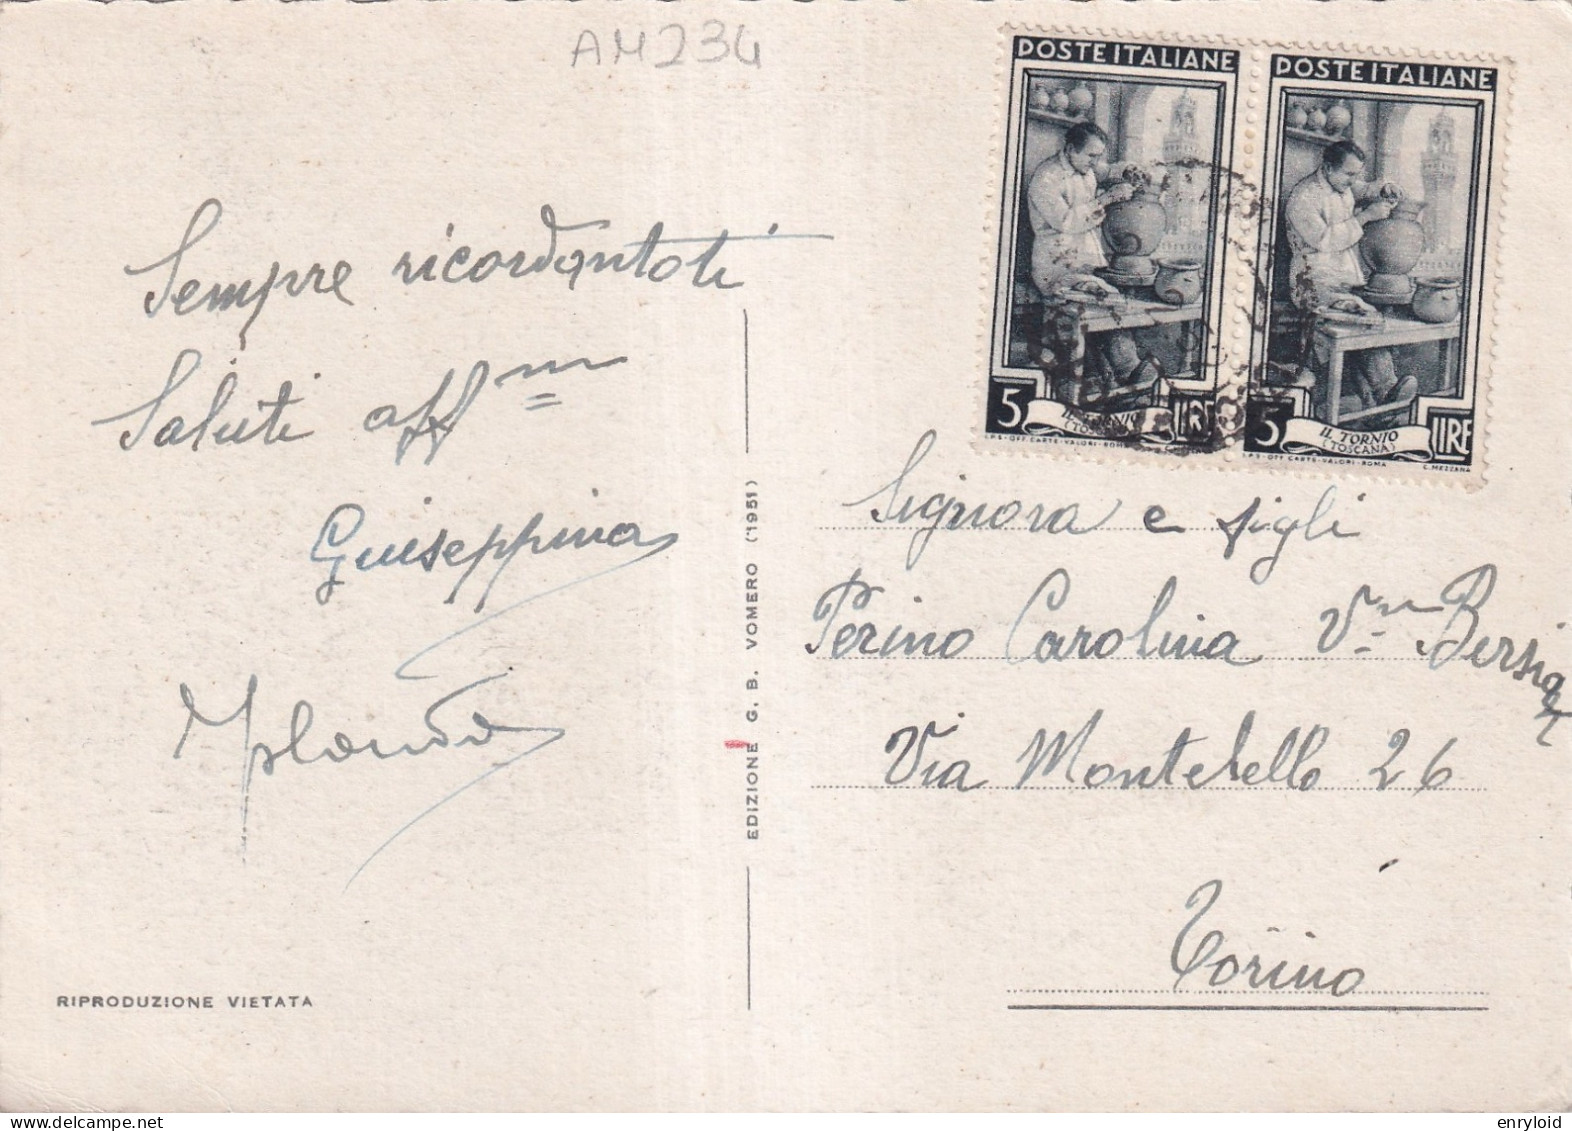 AM234
POSTE ITALIANE
POSTE ITALIANE
5 IL TORNIO LIRE
(TOSCANA)
I.P.S.-OFF. CARTE-VALORI-ROMA
5 IL TORNIO LIRE
(TOSCANA)
I.P.S.-OFF. CARTE-VALORI-ROMA C. MEZZANA
Sempre ricordantoti
Saluti aff.mi
Giuseppina
EDIZIONE G. B. VOMERO (1951)
Signora e figli
Perino Carolina V.
Via Montebello 26
Torino
RIPRODUZIONE VIETATA
enryloid @ Delcampe.net